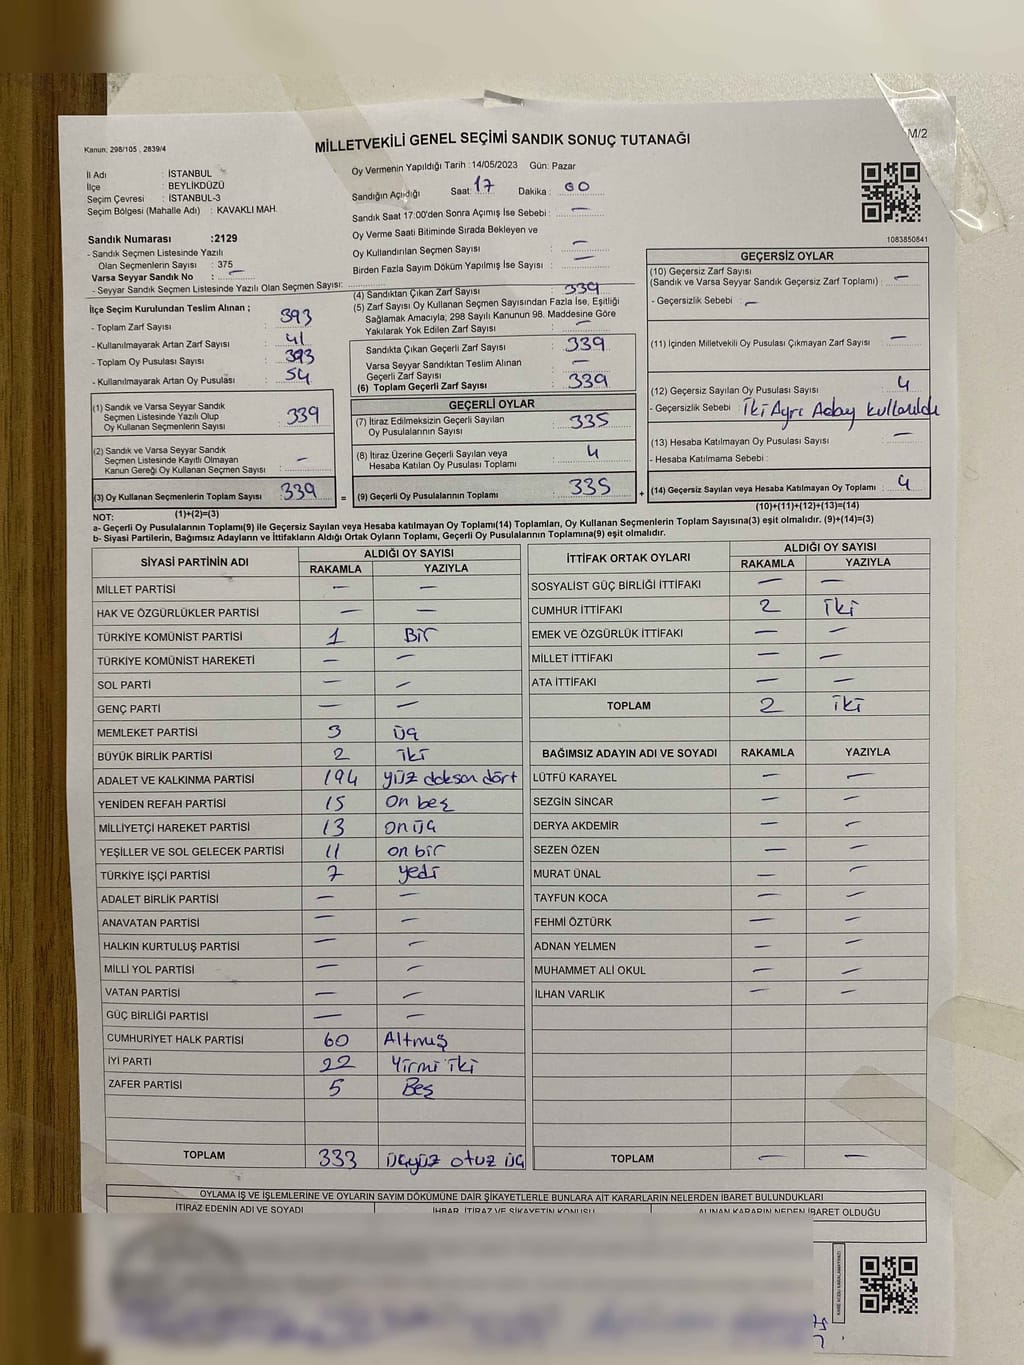 M/2
Kanun: 298/105 , 2839/4
MİLLETVEKİLİ GENEL SEÇİMİ SANDIK SONUÇ TUTANAĞI
İl Adı : İSTANBUL
İlçe : BEYLİKDÜZÜ
Seçim Çevresi : İSTANBUL-3
Seçim Bölgesi (Mahalle Adı) : KAVAKLI MAH.
Sandık Numarası :2129
- Sandık Seçmen Listesinde Yazılı
Olan Seçmenlerin Sayısı : 375
Varsa Seyyar Sandık No : —
- Seyyar Sandık Seçmen Listesinde Yazılı Olan Seçmen Sayısı:
İlçe Seçim Kurulundan Teslim Alınan ;
- Toplam Zarf Sayısı : 393
- Kullanılmayarak Artan Zarf Sayısı : 41
- Toplam Oy Pusulası Sayısı : 393
- Kullanılmayarak Artan Oy Pusulası : 54
(1) Sandık ve Varsa Seyyar Sandık
Seçmen Listesinde Yazılı Olup
Oy Kullanan Seçmenlerin Sayısı : 339
(2) Sandık ve Varsa Seyyar Sandık
Seçmen Listesinde Kayıtlı Olmayan
Kanun Gereği Oy Kullanan Seçmen Sayısı : —
(3) Oy Kullanan Seçmenlerin Toplam Sayısı : 339
(1)+(2)=(3)
Oy Vermenin Yapıldığı Tarih :14/05/2023 Gün: Pazar
Sandığın Açıldığı Saat: 17 Dakika : 00
Sandık Saat 17:00'den Sonra Açılmış İse Sebebi : —
Oy Verme Saati Bitiminde Sırada Bekleyen ve
Oy Kullandırılan Seçmen Sayısı : —
Birden Fazla Sayım Döküm Yapılmış İse Sayısı : —
(4) Sandıktan Çıkan Zarf Sayısı : 339
(5) Zarf Sayısı Oy Kullanan Seçmen Sayısından Fazla İse, Eşitliği
Sağlamak Amacıyla, 298 Sayılı Kanunun 98. Maddesine Göre
Yakılarak Yok Edilen Zarf Sayısı : —
Sandıkta Çıkan Geçerli Zarf Sayısı : 339
Varsa Seyyar Sandıktan Teslim Alınan
Geçerli Zarf Sayısı : —
(6) Toplam Geçerli Zarf Sayısı : 339
GEÇERLİ OYLAR
(7) İtiraz Edilmeksizin Geçerli Sayılan
Oy Pusulalarının Sayısı : 335
(8) İtiraz Üzerine Geçerli Sayılan veya
Hesaba Katılan Oy Pusulası Toplamı : 4
= (9) Geçerli Oy Pusulalarının Toplamı : 335
1083850841
GEÇERSİZ OYLAR
(10) Geçersiz Zarf Sayısı
(Sandık ve Varsa Seyyar Sandık Geçersiz Zarf Toplamı) : —
- Geçersizlik Sebebi : —
(11) İçinden Milletvekili Oy Pusulası Çıkmayan Zarf Sayısı : —
(12) Geçersiz Sayılan Oy Pusulası Sayısı : 4
- Geçersizlik Sebebi : İki Ayrı Aday kullanıldı
(13) Hesaba Katılmayan Oy Pusulası Sayısı : —
- Hesaba Katılmama Sebebi :
+ (14) Geçersiz Sayılan veya Hesaba Katılmayan Oy Toplamı : 4
(10)+(11)+(12)+(13)=(14)
NOT:
a- Geçerli Oy Pusulalarının Toplamı(9) ile Geçersiz Sayılan veya Hesaba katılmayan Oy Toplamı(14) Toplamları, Oy Kullanan Seçmenlerin Toplam Sayısına(3) eşit olmalıdır. (9)+(14)=(3)
b- Siyasi Partilerin, Bağımsız Adayların ve İttifakların Aldığı Ortak Oyların Toplamı, Geçerli Oy Pusulalarının Toplamına(9) eşit olmalıdır.
SİYASİ PARTİNİN ADI ALDIĞI OY SAYISI
RAKAMLA YAZIYLA
MİLLET PARTİSİ — —
HAK VE ÖZGÜRLÜKLER PARTİSİ — —
TÜRKİYE KOMÜNİST PARTİSİ 1 Bir
TÜRKİYE KOMÜNİST HAREKETİ — —
SOL PARTİ — —
GENÇ PARTİ — —
MEMLEKET PARTİSİ 3 üç
BÜYÜK BİRLİK PARTİSİ 2 iki
ADALET VE KALKINMA PARTİSİ 194 yüz doksan dört
YENİDEN REFAH PARTİSİ 15 on beş
MİLLİYETÇİ HAREKET PARTİSİ 13 on üç
YEŞİLLER VE SOL GELECEK PARTİSİ 11 on bir
TÜRKİYE İŞÇİ PARTİSİ 7 yedi
ADALET BİRLİK PARTİSİ — —
ANAVATAN PARTİSİ — —
HALKIN KURTULUŞ PARTİSİ — —
MİLLİ YOL PARTİSİ — —
VATAN PARTİSİ — —
GÜÇ BİRLİĞİ PARTİSİ — —
CUMHURİYET HALK PARTİSİ 60 Altmış
İYİ PARTİ 22 Yirmi iki
ZAFER PARTİSİ 5 Beş
TOPLAM 333 üçyüz otuz üç
İTTİFAK ORTAK OYLARI ALDIĞI OY SAYISI
RAKAMLA YAZIYLA
SOSYALİST GÜÇ BİRLİĞİ İTTİFAKI — —
CUMHUR İTTİFAKI 2 iki
EMEK VE ÖZGÜRLÜK İTTİFAKI — —
MİLLET İTTİFAKI — —
ATA İTTİFAKI — —
TOPLAM 2 iki
BAĞIMSIZ ADAYIN ADI VE SOYADI RAKAMLA YAZIYLA
LÜTFÜ KARAYEL — —
SEZGİN SİNCAR — —
DERYA AKDEMİR — —
SEZEN ÖZEN — —
MURAT ÜNAL — —
TAYFUN KOCA — —
FEHMİ ÖZTÜRK — —
ADNAN YELMEN — —
MUHAMMET ALİ OKUL — —
İLHAN VARLIK — —
TOPLAM — —
OYLAMA İŞ VE İŞLEMLERİNE VE OYLARIN SAYIM DÖKÜMÜNE DAİR ŞİKAYETLERLE BUNLARA AİT KARARLARIN NELERDEN İBARET BULUNDUKLARI
İTİRAZ EDENİN ADI VE SOYADI İHBAR, İTİRAZ VE ŞİKAYETİN KONUSU ALINAN KARARIN NEDEN İBARET OLDUĞU